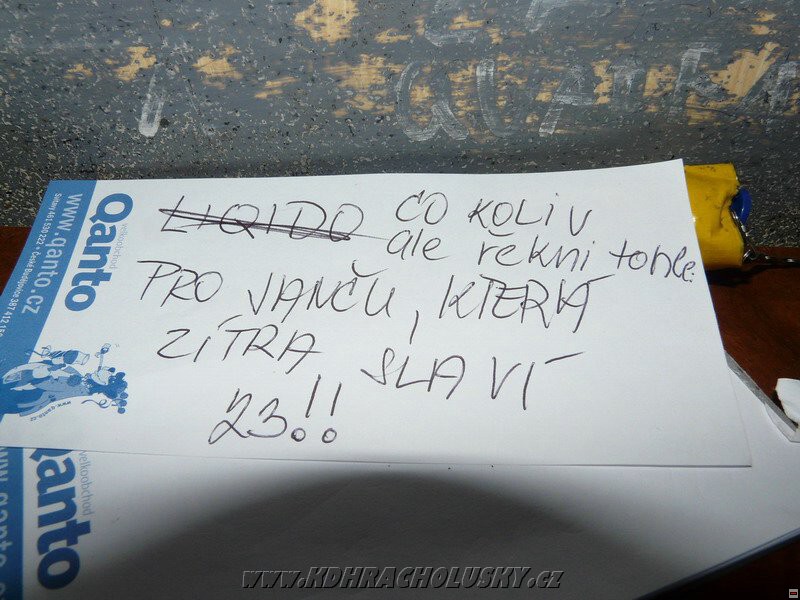 QUADRA
LIQIDO CO KOLIV
ale rekni tohle:
PRO VANČU, KTERÁ
ZÍTRA SLAVÍ
23!!
velkoobchod
Qanto
www.qanto.cz
www.qanto.cz
velkoobchod
Qanto
www.KDHRACHOLUSKY.cz